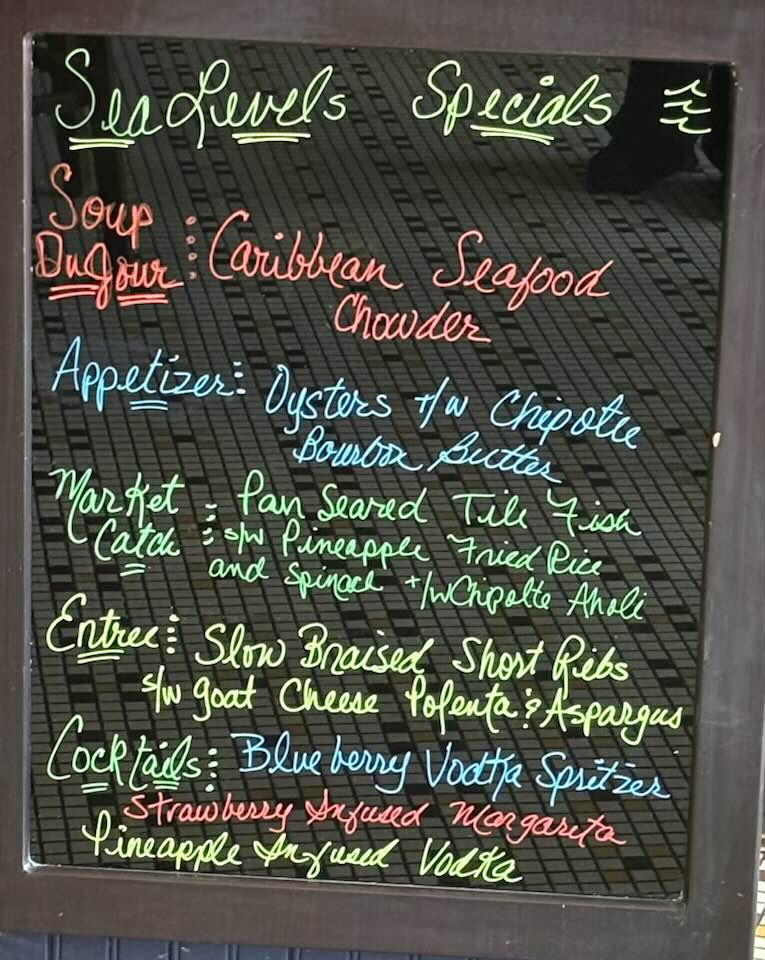 Sea Levels Specials
Soup
DuJour : Caribbean Seafood
Chowder
Appetizer : Oysters t/w Chipotle
Bourbon Butter
Market : Pan Seared Tile Fish
Catch : s/w Pineapple Fried Rice
and Spinach t/w Chipolte Aholi
Entree : Slow Braised Short Ribs
s/w goat Cheese Polenta & Aspargus
Cocktails : Blueberry Vodka Spritzer
Strawberry Infused Margarita
Pineapple Infused Vodka